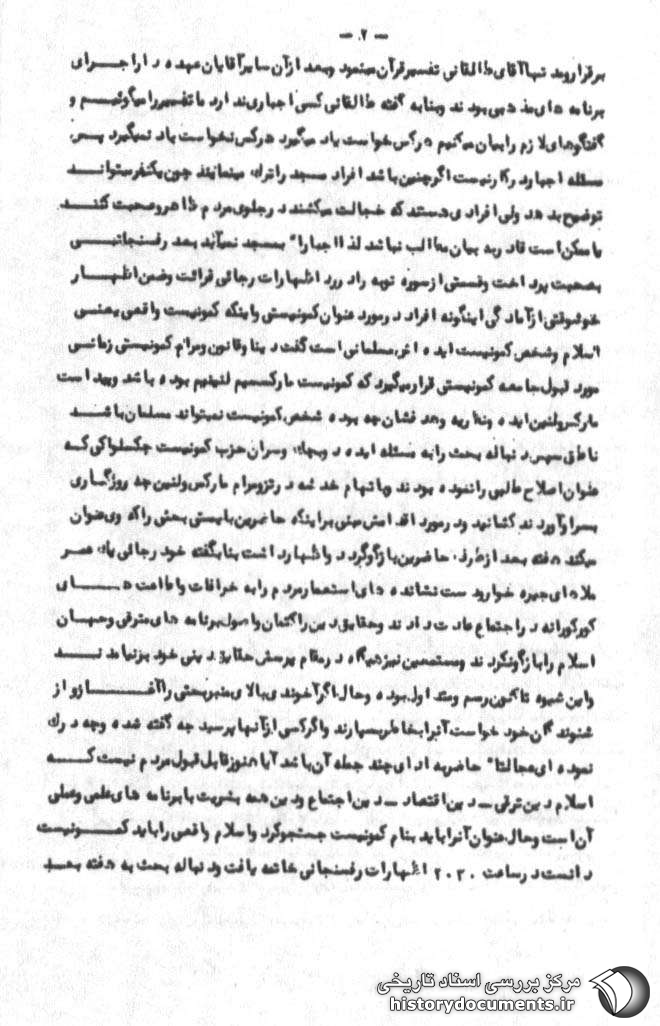 — ۲. —
برقرار و تنها آقای طالقانی تفسیر قرآن مینمود و بعد از آن سایر آقایان عهده دار اجرای
برنامه های مذهبی بودند و بنا به گفته طالقانی کسی اجباری ندارد ما تفسیر را میگوئیم و
گفتگوهای لازم را بیان میکنیم هرکس خواست یاد میگیرد هرکس نخواست یاد نمیگیرد پس
مسئله اجبار در کار نیست اگر چنین باشد افراد مسجد را ترک مینمایند چون یکنفر میتواند
توضیح بدهد ولی افرادی هستند که خجالت میکشند در جلوی مردم ظاهر و صحبت کنند
یا ممکن است قادر به بیان مطالب نباشد لذا اجبارا" بمسجد نمیآید بعد رفسنجانی
بصحبت پرداخت و قسمتی از سوره توبه را در رد اظهارات رجائی قرائت و ضمن اظهار
خوشوقتی از آمادگی اینگونه افراد در مورد عنوان کمونیستی و اینکه کمونیست واقعی یعنی
اسلام و شخص کمونیست ایده اش مسلمانی است گفت دینا و قانون و مرام کمونیستی زمانی
مورد قبول جامعه کمونیستی قرار میگیرد که کمونیست مارکسیم لنینیم بوده باشد و پیداست
مارکس و لنین ایده و نظریه و هدفشان چه بوده شخص کمونیست نمیتواند مسلمان باشد
ناطق سپس دنباله بحث را به مسئله ایده دوبچک و سران حزب کمونیست چکسلواکی که
عنوان اصلاح طلبی را نموده بودند و باتهام خدشه در رژیم و مرام مارکس و لنین چه روزگاری
بسر او آوردند کشانید و در مورد اقدامش مبنی بر اینکه حاضرین بایستی بحثی را که وی عنوان
میکند هفته بعد از طرف حاضرین بازگو گردد و اظهار داشت بنا بگفته خود رجائی یک عمر
ملاهای جیره خوار و دست نشانده های استعمار مردم را به خرافات و اطاعت های
کورکورانه در اجتماع عادت دادند و حقایق دین را کتمان و اصول برنامه های مترقی و جهان
اسلام را بازگو نکردند و مستمعین نیز هیچگاه در مقام پرسش حقایق دینی خود برنیامدند
و این شیوه تا کنون رسم و متداول بوده و حال اگر آخوندی بالای منبر بحثی را آغاز و از
شنوندگان خود خواست آنرا بخاطر بسپارند و اگر کسی از آنها پرسید چه گفته شده و چه درک
نموده ای عجالتا" حاضر به ادای چند جمله آن باشد آیا هنوز قابل قبول مردم نیست که
اسلام دین ترقی – دین اقتصاد – دین اجتماع و دین همه بشریت با برنامه های علمی و عملی
آن است و حال عنوان آنرا باید بنام کمونیست جستجو کرد و اسلام واقعی را باید کمونیست
دانست در ساعت ۲۰۳۰ اظهارات رفسنجانی خاتمه یافت و دنباله بحث به هفته بعد
مرکز بررسی اسناد تاریخی
historydocuments.ir